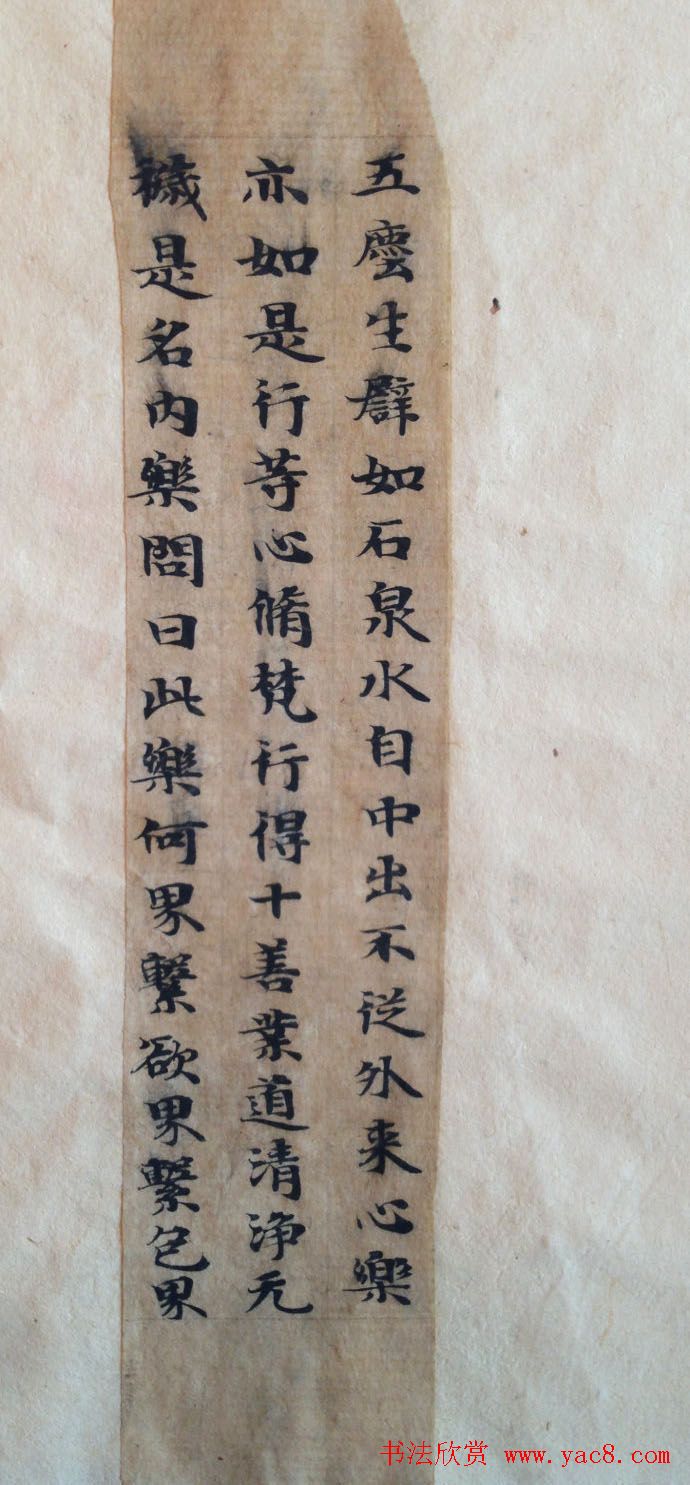 五塵生譬如石泉水自中出不従外来心樂
亦如是行等心脩梵行得十善業道清浄无
穢是名内樂問曰此樂何界繫欲界繫色界
书法欣赏 www.yac8.com